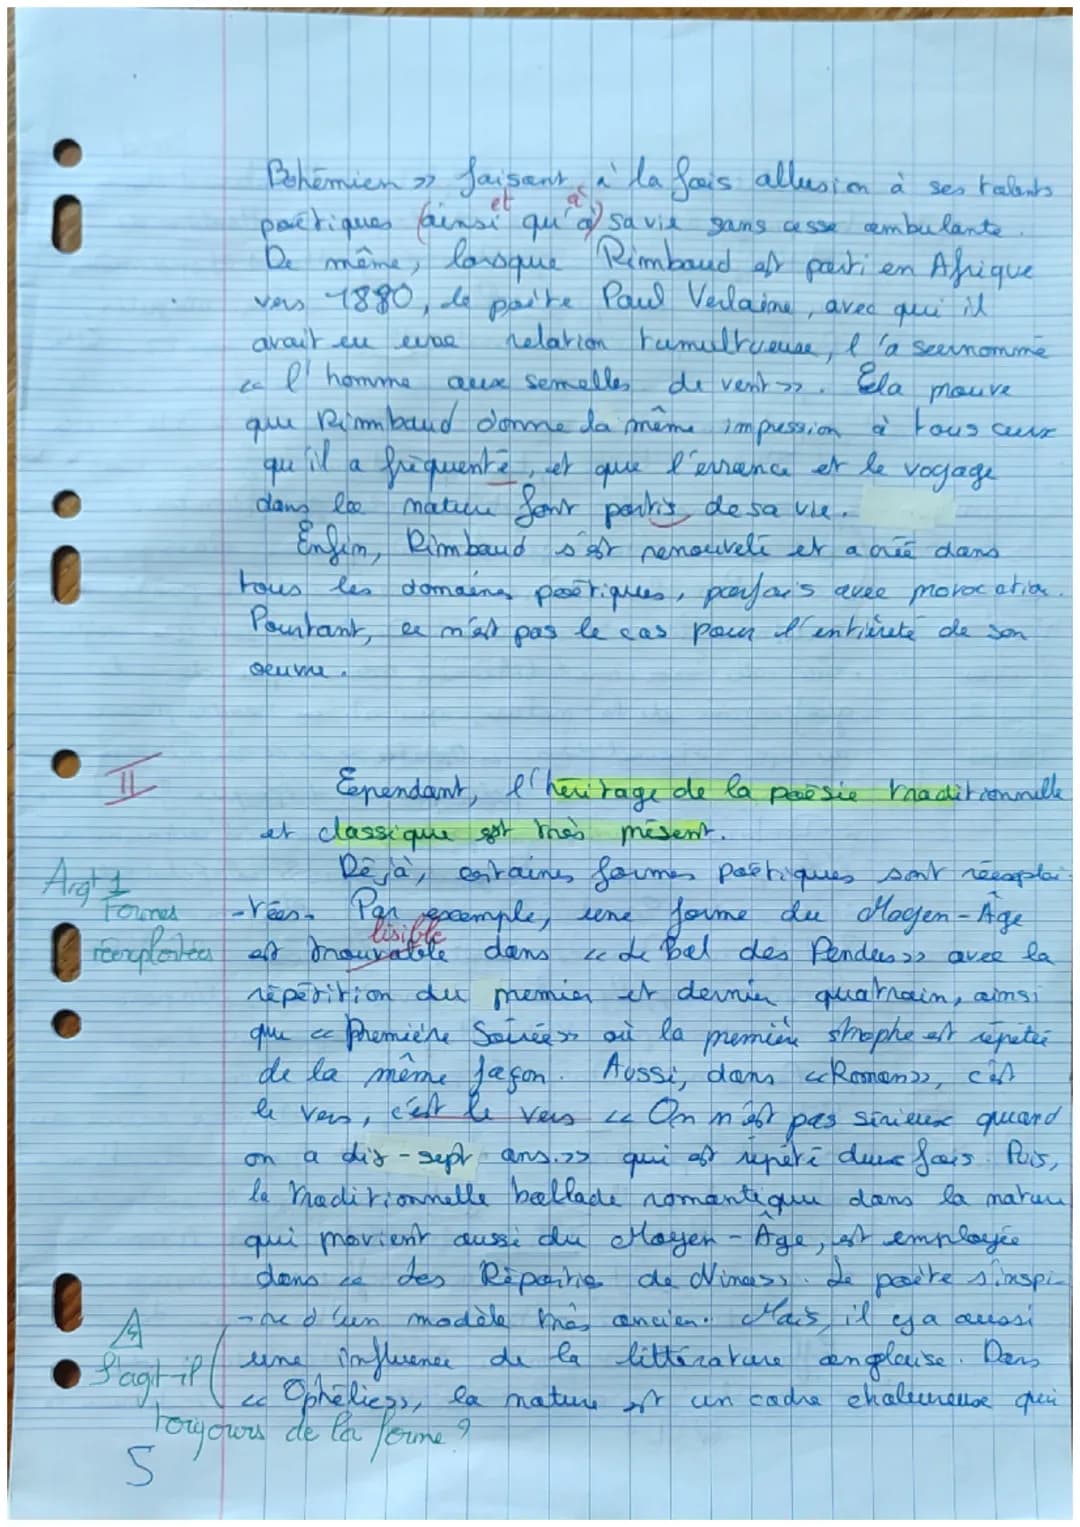 Bohémien >> faisant à la fois allusion à ses talents
et à
poétiques (ainsi qu'à) sa vie sans cesse ambulante.
De même, lorsque Rimbaud est parti en Afrique
vers 1880, le poète Paul Verlaine, avec qui il
avait eu une relation tumultueuse, l'a surnommé
<< l'homme aux semelles de vent >>. Cela prouve
que Rimbaud donne la même impression à tous ceux
qu'il a fréquenté, et que l'errance et le voyage
dans la nature font partis de sa vie.
Enfin, Rimbaud s'est renouvelé et a créé dans
tous les domaines poétiques, parfois avec provocation.
Pourtant, ce n'est pas le cas pour l'entièreté de son
oeuvre.
II
Cependant, l'héritage de la poésie traditionnelle
et classique est très présent.
Déjà, certaines formes poétiques sont réexploi-
Argt 1
Formes
réexploitées
-tées. Par exemple, une forme du Moyen-Âge
lisible
est trouvable dans << Le Bal des Pendus >> avec la
répétition du premier et dernier quatrain, ainsi
que << Première Soirée >> où la première strophe est répétée
de la même façon. Aussi, dans << Roman >>, c'est
le vers, c'est le vers << On n'est pas sérieux quand
on a dix-sept ans. >> qui est répété deux fois. Puis,
la traditionnelle ballade romantique dans la nature
qui provient aussi du Moyen-Âge, est employée
dans << Les Réparties de Nina >>. Le poète s'inspi-
-re d'un modèle très ancien. Mais, il y a aussi
une influence de la littérature anglaise. Dans
<< Ophélie >>, la nature est un cadre chaleureux qui
S'agit-il
toujours de la forme ?
5